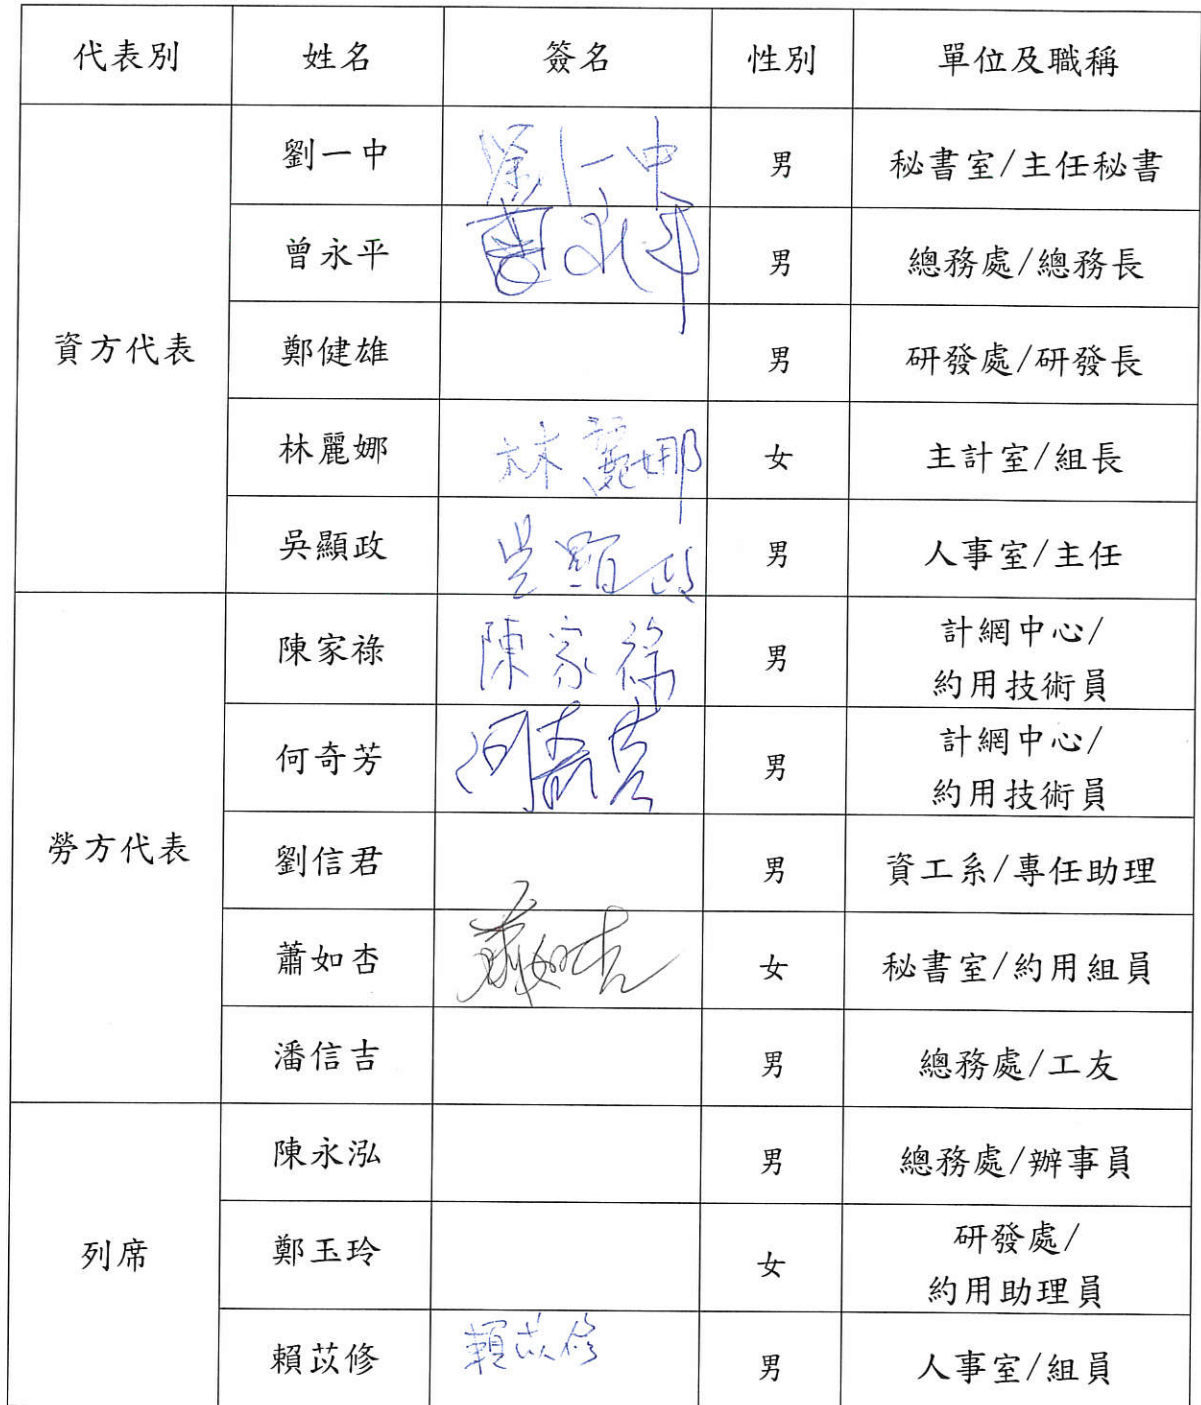 代表別 姓名 簽名 性別 單位及職稱
資方代表
劉一中 劉一中 男 秘書室/主任秘書
曾永平 曾永平 男 總務處/總務長
鄭健雄 男 研發處/研發長
林麗娜 林麗娜 女 主計室/組長
吳顯政 吳顯政 男 人事室/主任
勞方代表
陳家祿 陳家祿 男 計網中心/
約用技術員
何奇芳 何奇芳 男 計網中心/
約用技術員
劉信君 男 資工系/專任助理
蕭如杏 蕭如杏 女 秘書室/約用組員
潘信吉 男 總務處/工友
列席
陳永泓 男 總務處/辦事員
鄭玉玲 女 研發處/
約用助理員
賴苡修 賴苡修 男 人事室/組員